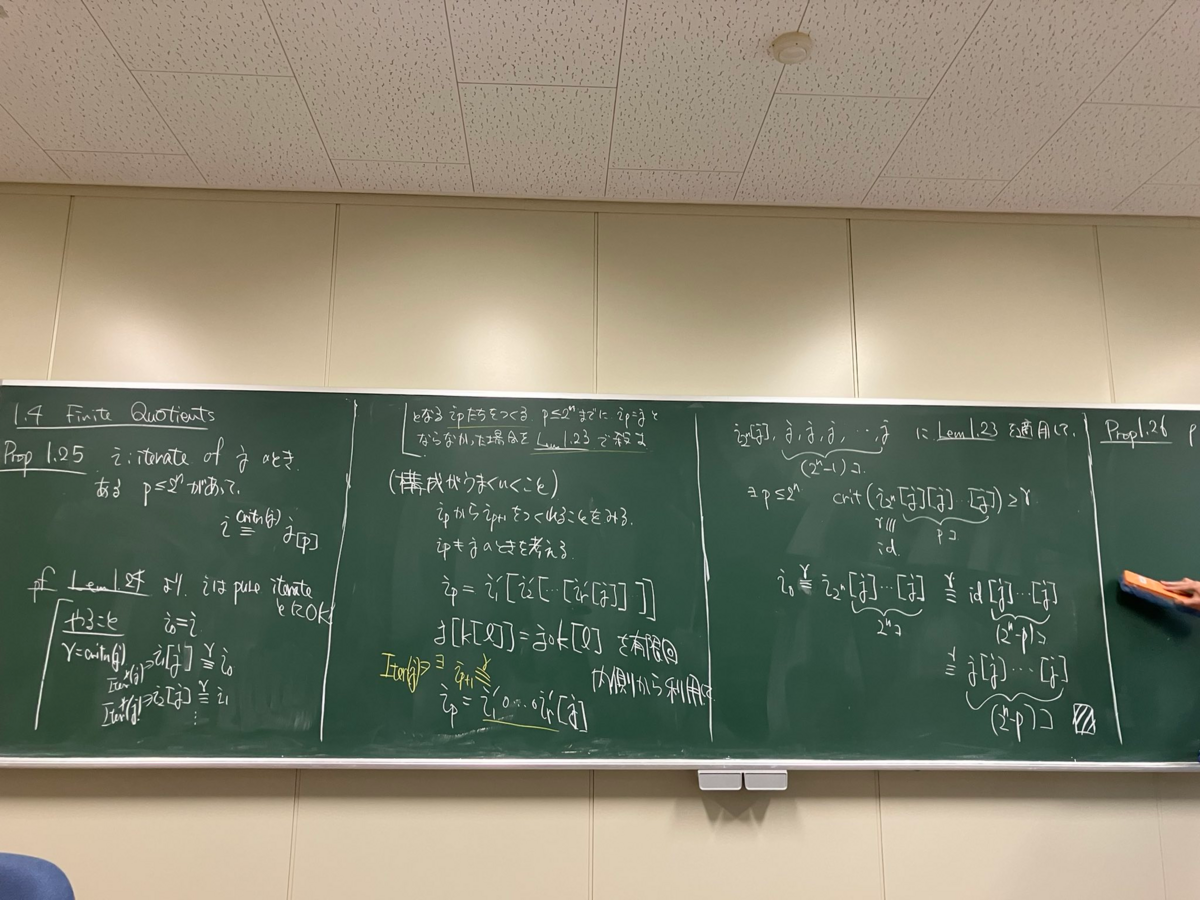 1.4 Finite Quotients
Prop 1.25 i: iterate of j のとき.
ある p≤2ⁿ があって.
i ≡^{crit_n(j)} j_{[p]}
pf Lem 1.24 より. i は pure iterate
としてOK
やること i₀=i
γ=crit_n(j) i₁[j] ≡^γ i₀
i₂[j] ≡^γ i₁
⋮
となる i_pたちをつくる. p≤2ⁿまでに i_p=j と
ならなかった場合を Lem 1.23 で
(構成がうまくいくこと)
i_pからi_{p+1}をつくれることをみる.
i_p≠jのときを考える.
i_p = i'₁[i'₂[…[i'_r[j]]…]]
j[k[l]] = j∘k[l] を有限回
内側から利用して
Iter(j)∋∃ i_{p+1} ≡^γ
i_p = i'₁∘…∘i'_r[j]
i_{2ⁿ}[j], j, j, j, …, j に Lem 1.23 を適用して.
(2ⁿ-1)コ.
∃p≤2ⁿ crit(i_{2ⁿ}[j][j]…[j]) ≥ γ
pコ
γ|||
id.
i₀ ≡^γ i_{2ⁿ}[j]…[j] ≡^γ id[j]…[j]
2ⁿコ (2ⁿ-p)コ
≡^γ j[j]…[j]
(2ⁿ-p)コ
Prop 1.26 p